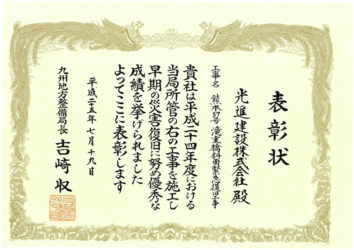 表彰状
光進建設株式会社 殿
工事名 熊本57号滝室橋斜面緊急復旧工事
貴社は平成二十四年度における
当局所管の右の工事を施工し
早期の災害復旧に努め優秀な
成績を挙げられました
よってここに表彰します
平成二十五年七月十九日
九州地方整備局長 吉﨑収